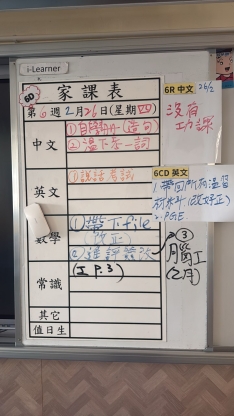 i-Learner
6D
家課表
第6週 2月26日(星期四)
中文
①自學冊(造句)
②溫下冬一詞
英文
①說話考試
數學
①帶下file
(改正)
②進評簽改
常識
(工 P.3)
其它
值日生
6R 中文 26/2
沒有
功課
6CD 英文
1. 帶回所有溫習
材料(改好正)
2. PGE
③
腦工
(2月)